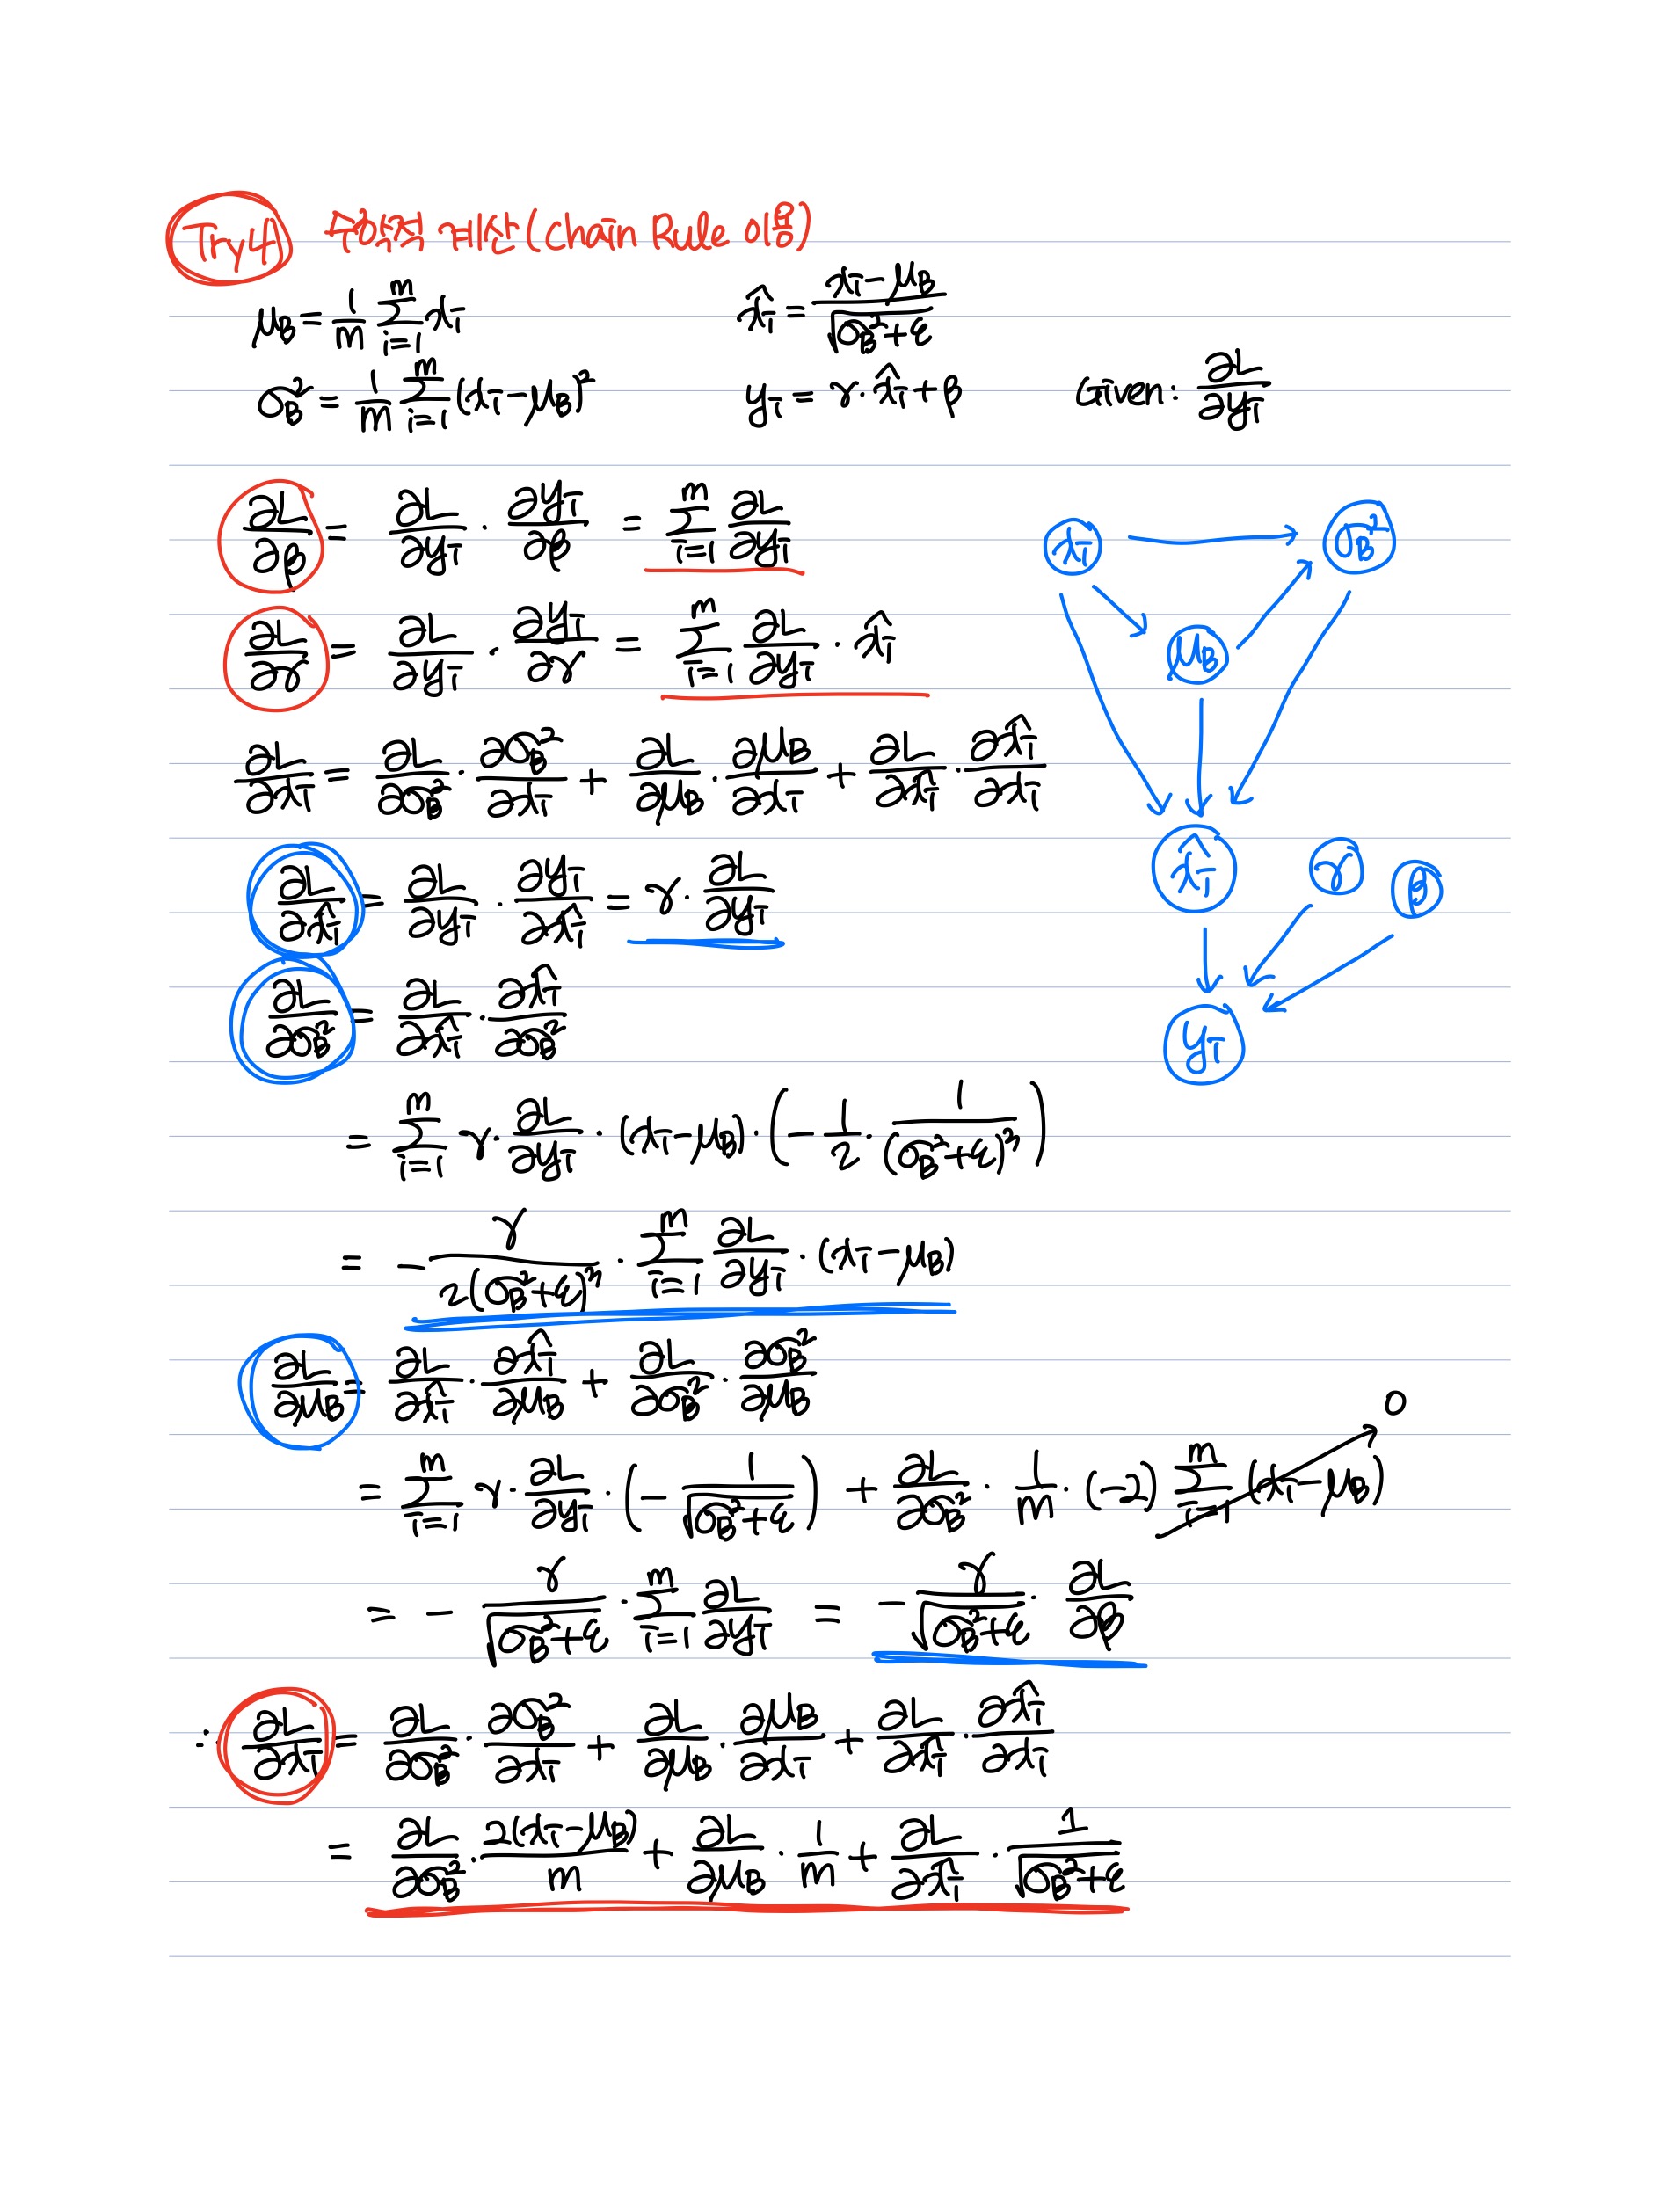 Try4 수학적 계산 (Chain Rule 이용)
μ_B = 1/m Σ_{i=1}^{m} x_i    x̂_i = (x_i - μ_B)/√(σ_B² + ε)
σ_B² = 1/m Σ_{i=1}^{m} (x_i - μ_B)²    y_i = γ · x̂_i + β    Given: ∂L/∂y_i
∂L/∂β = ∂L/∂y_i · ∂y_i/∂β = Σ_{i=1}^{m} ∂L/∂y_i
∂L/∂γ = ∂L/∂y_i · ∂y_i/∂γ = Σ_{i=1}^{m} ∂L/∂y_i · x̂_i
∂L/∂x_i = ∂L/∂σ_B² · ∂σ_B²/∂x_i + ∂L/∂μ_B · ∂μ_B/∂x_i + ∂L/∂x̂_i · ∂x̂_i/∂x_i
∂L/∂x̂_i = ∂L/∂y_i · ∂y_i/∂x̂_i = γ · ∂L/∂y_i
∂L/∂σ_B² = ∂L/∂x̂_i · ∂x̂_i/∂σ_B²
= Σ_{i=1}^{m} γ · ∂L/∂y_i · (x_i - μ_B) · (- 1/2 · 1/(σ_B² + ε)³)
= - γ/2(σ_B² + ε)³ · Σ_{i=1}^{m} ∂L/∂y_i · (x_i - μ_B)
∂L/∂μ_B = ∂L/∂x̂_i · ∂x̂_i/∂μ_B + ∂L/∂σ_B² · ∂σ_B²/∂μ_B
= Σ_{i=1}^{m} γ · ∂L/∂y_i · (- 1/√(σ_B² + ε)) + ∂L/∂σ_B² · 1/m · (-2) Σ_{i=1}^{m} (x_i - μ_B) 0
= - γ/√(σ_B² + ε) · Σ_{i=1}^{m} ∂L/∂y_i = - γ/√(σ_B² + ε) · ∂L/∂β
∴ ∂L/∂x_i = ∂L/∂σ_B² · ∂σ_B²/∂x_i + ∂L/∂μ_B · ∂μ_B/∂x_i + ∂L/∂x̂_i · ∂x̂_i/∂x_i
= ∂L/∂σ_B² · 2(x_i - μ_B)/m + ∂L/∂μ_B · 1/m + ∂L/∂x̂_i · 1/√(σ_B² + ε)
x_i σ_B²
μ_B
x̂_i γ β
y_i